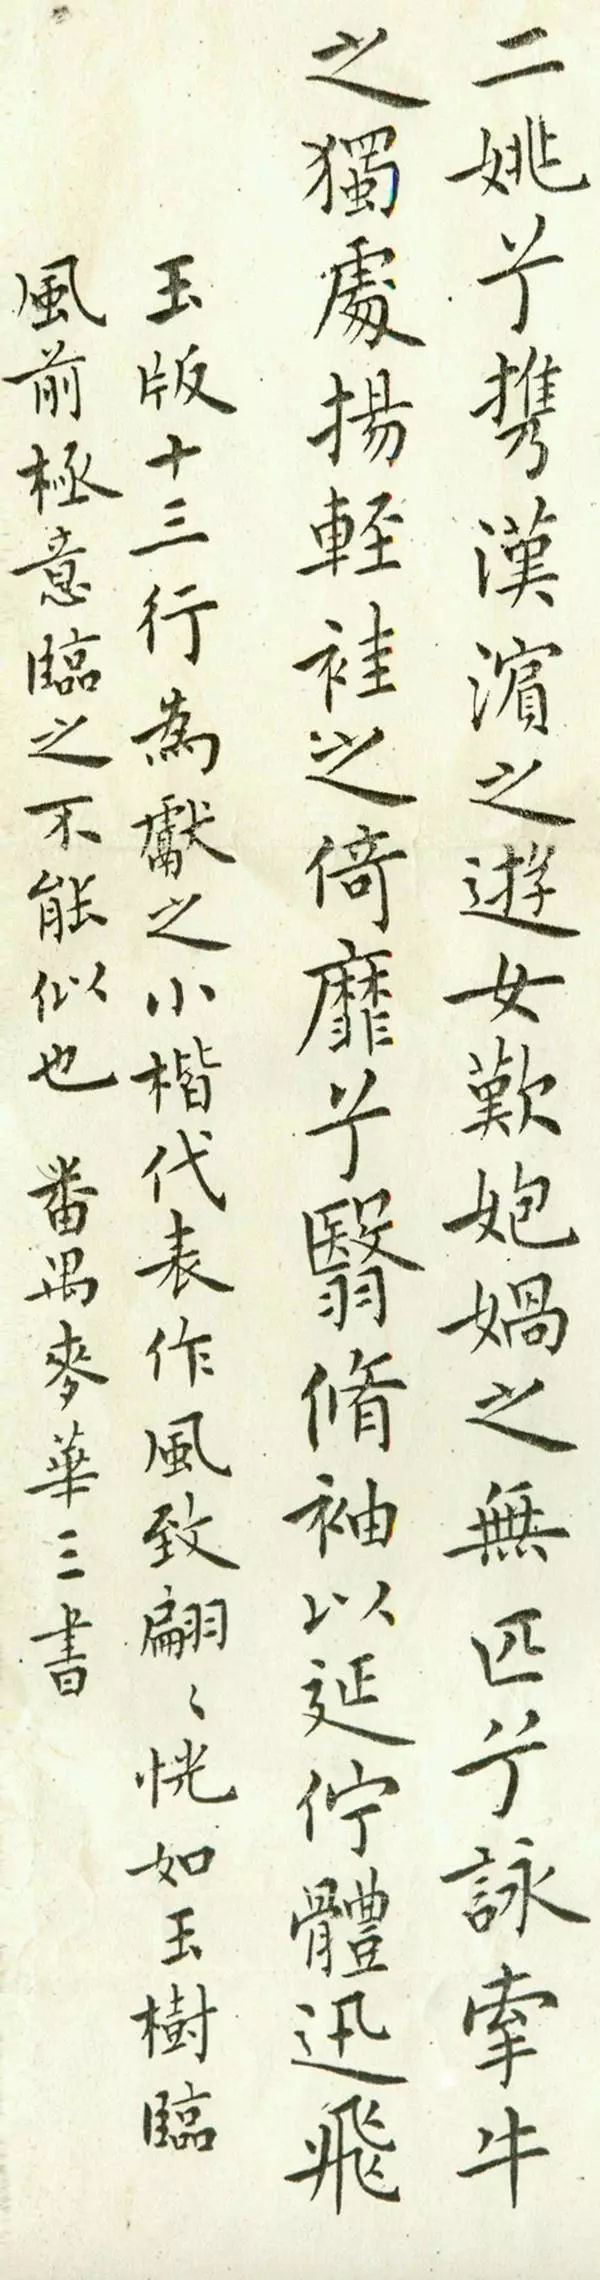 二姚兮携漢濵之遊女歎匏媧之無匹兮詠牽牛
之獨處揚輕袿之倚靡兮翳脩袖以延佇體迅飛
玉版十三行為獻之小楷代表作風致翩〻恍如玉樹臨
風前極意臨之不能似也 番禺麥華三書